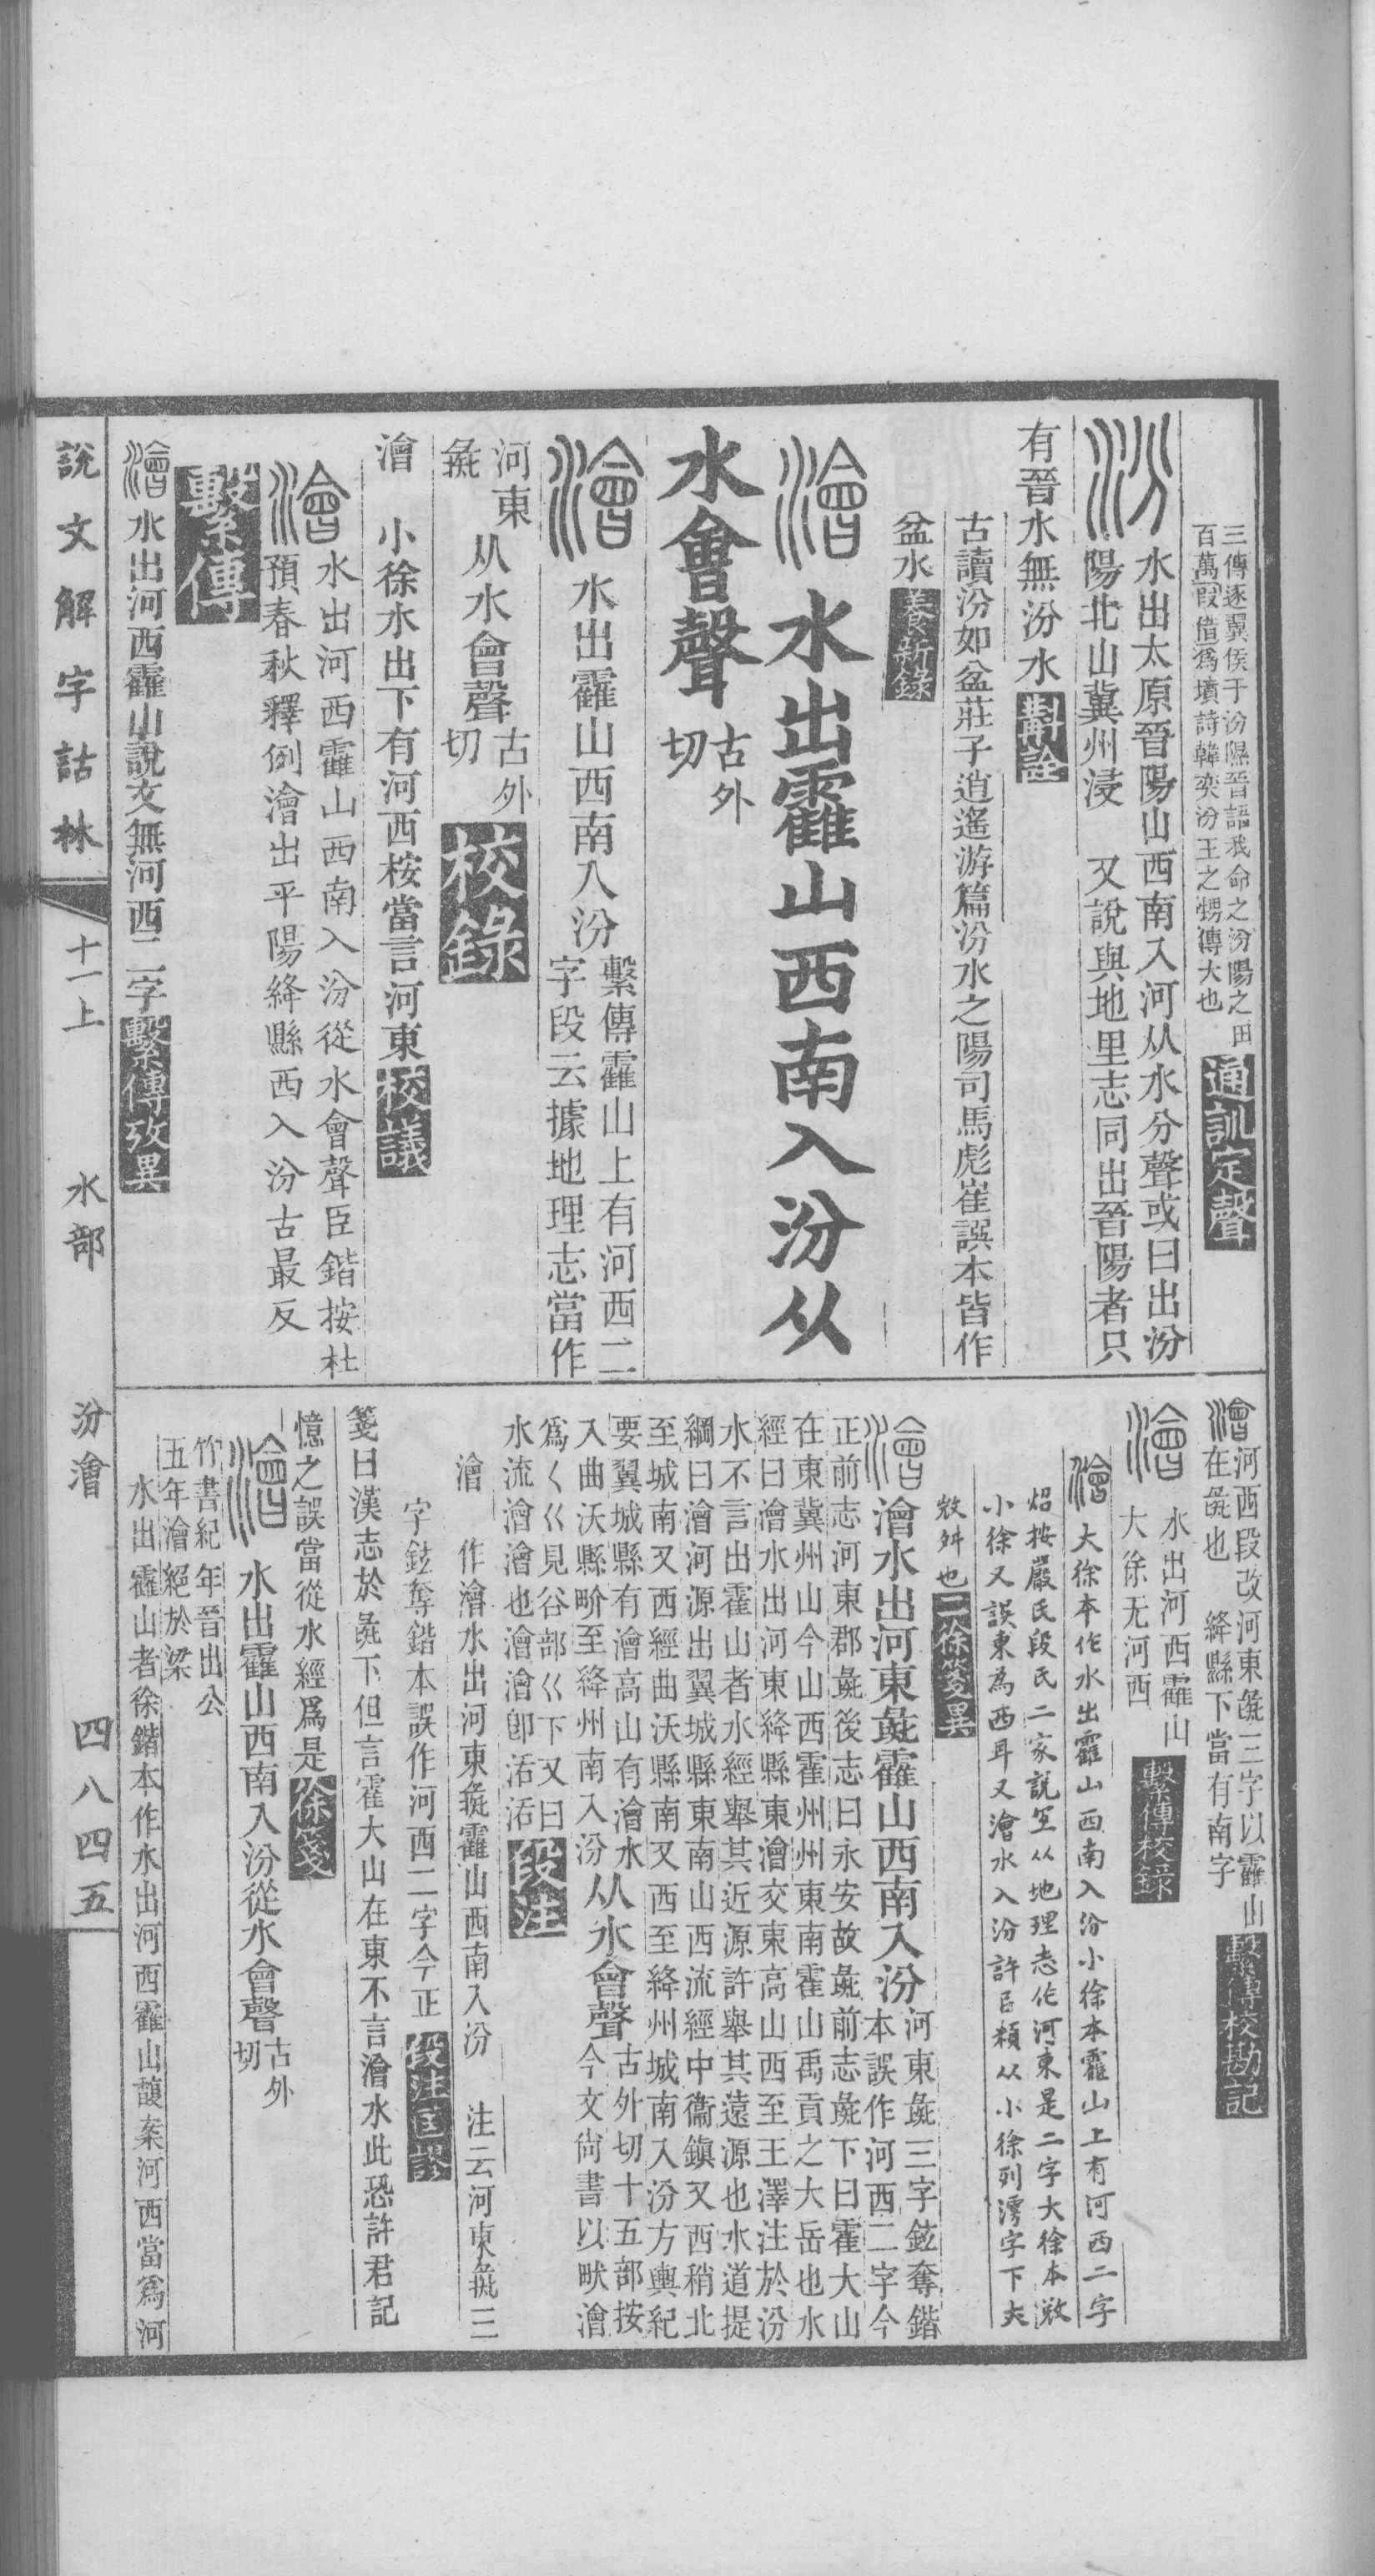 三傳逐翼侯于汾隰晉語我命之汾陽之田
百萬叚借爲墳詩韓奕汾王之甥傳大也
通訓定聲
汾
水出太原晉陽山西南入河从水分聲或曰出汾
陽北山冀州浸　又說與地里志同出晉陽者只
有晉水無汾水
斠詮
古讀汾如盆莊子逍遙游篇汾水之陽司馬彪崔譔本皆作
盆水
養新錄
澮
水出霍山西南入汾从
水會聲
古外
切
澮
水出霍山西南入汾
繫傳霍山上有河西二
字段云據地理志當作
河東
彘
从水會聲
古外
切
校錄
澮　小徐水出下有河西桉當言河東
校議
澮
水出河西霍山西南入汾從水會聲臣鍇按杜
預春秋釋例澮出平陽絳縣西入汾古最反
繫傳
澮水出河西靃山說文無河西二字
繫傳攷異
澮
河西段改河東彘三字以靃山
在彘也　絳縣下當有南字
繫傳校勘記
澮
水出河西靃山
大徐无河西
繫傳校錄
澮　大徐本作水出靃山西南入汾小徐本靃山上有河西二字
炤按嚴氏段氏二家說宐从地理志作河東是二字大徐本敚
小徐又誤東為西耳又澮水入汾許㠯類从小徐列澇字下大
敚舛也
二徐箋異
澮
澮水出河東彘靃山西南入汾
河東彘三字鉉奪鍇
本誤作河西二字今
正前志河東郡彘後志曰永安故彘前志彘下曰霍大山
在東冀州山今山西霍州州東南霍山禹貢之大岳也水
經曰澮水出河東絳縣東澮交東高山西至王澤注於汾
水不言出霍山者水經舉其近源許舉其遠源也水道提
綱曰澮河源出翼城縣東南山西流經中衞鎮又西稍北
至城南又西經曲沃縣南又西至絳州城南入汾方輿紀
要翼城縣有澮高山有澮水
入曲沃縣畍至絳州南入汾
从水會聲
古外切十五部按
今文尙書以畎澮
爲〈巜見谷部巜下又曰
水流澮澮也澮澮卽湉湉
段注
澮　作澮水出河東彘靃山西南入汾　注云河東彘三
字鉉奪鍇本誤作河西二字今正
段注匡謬
箋曰漢志於彘下但言霍大山在東不言澮水此恐許君記
憶之誤當從水經爲是
徐箋
澮
水出靃山西南入汾從水會聲
古外
切
竹書紀年晉出公
五年澮絕於梁
水出靃山者徐鍇本作水出河西靃山馥案河西當爲河
說文解字詁林　十一上　水部　汾澮　四八四五